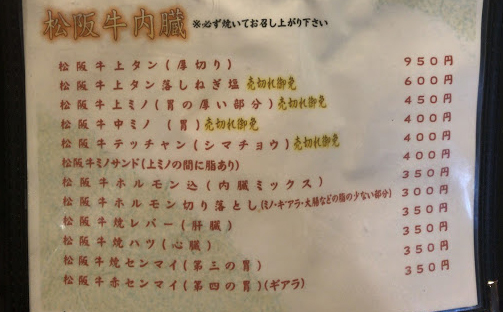 松阪牛内臓 ※必ず焼いてお召し上がり下さい
松阪牛上タン(厚切り) 950円
松阪牛上タン落しねぎ塩 売切れ御免 600円
松阪牛上ミノ(胃の厚い部分) 売切れ御免 450円
松阪牛中ミノ (胃) 売切れ御免 400円
松阪牛テッチャン(シマチョウ) 売切れ御免 400円
松阪牛ミノサンド(上ミノの間に脂あり) 400円
松阪牛ホルモン込(内臓ミックス) 350円
松阪牛ホルモン切り落とし(ミノ・ギアラ・大腸などの脂の少ない部分) 300円
松阪牛焼レバー(肝臓) 350円
松阪牛焼ハツ(心臓) 350円
松阪牛焼センマイ(第三の胃) 350円
松阪牛赤センマイ(第四の胃)(ギアラ) 350円